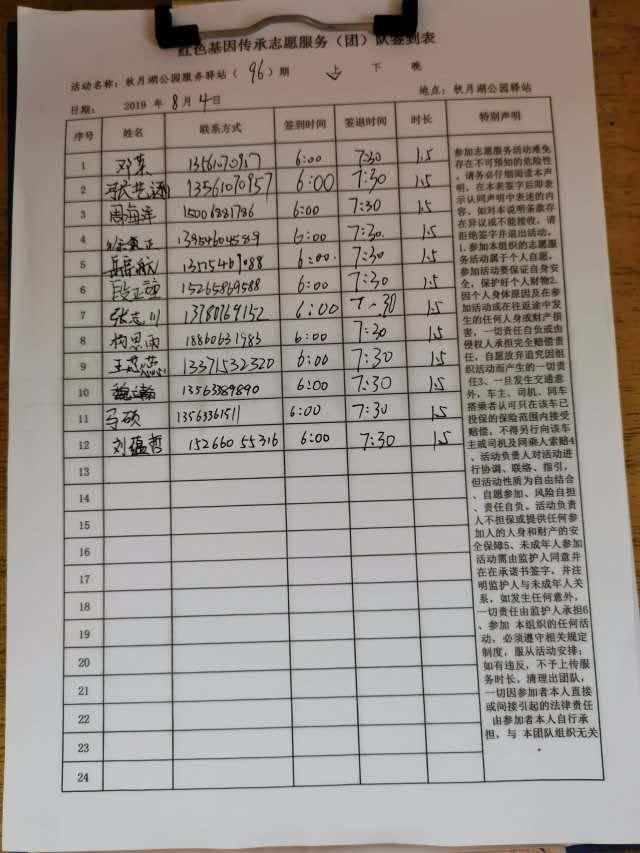 红色基因传承志愿服务（团）队签到表
活动名称：秋月湖公园服务驿站（96）期 上 下 晚
日期： 2019 年 8 月 4 日 地点：秋月湖公园驿站
序号 姓名 联系方式 签到时间 签退时间 时长 特别声明
1 邓某 13561070957 6:00 7:30 1.5
2 13561070957 6:00 7:30 1.5
3 周海洋 15006881786 6:00 7:30 1.5
4 13954604589 6:00 7:30 1.5
5 6:00 7:30 1.5
6 段正 15265869588 6:00 7:30 1.5
7 张志川 13780769152 6:00 7-30 1.5
8 18860631983 6:00 7:30 1.5
9 王 13371532320 6:00 7:30 1.5
10 魏瀚 13563389890 6:00 7:30 1.5
11 马硕 13563361511 6:00 7:30 1.5
12 刘蕴哲 15266055316 6:00 7:30 1.5
13
14
15
16
17
18
19
20
21
22
23
24
参加志愿服务活动难免
存在不可预知的危险性
，请务必仔细阅读本声
明，在本表签字后即表
示认同声明中表述的内
容，如对本说明条款存
在异议或不能接受，请
拒绝签字并退出活动。
1.参加本组织的志愿服
务活动属于个人自愿，
参加活动要保证自身安
全，保护好个人财物2.
因个人身体原因及在参
加活动或在往返途中发
生的任何人身或财产损
害，一切责任自负或由
侵权人承担完全赔偿责
任，自愿放弃追究因组
织活动而产生的一切责
任3、一旦发生交通意
外，车主、司机、同车
搭乘者认可只在该车已
投保的保险范围内接受
赔偿，不得另行向该车
主或司机及同乘人索赔4
、活动负责人对活动进
行协调、联络、指引，
但活动性质为自由结合
、自愿参加、风险自担
、责任自负。活动负责
人不担保或提供任何参
加人的人身和财产的安
全保障5、未成年人参加
活动需由监护人同意并
在在承诺书签字，并注
明监护人与未成年人关
系，如发生任何意外，
一切责任由监护人承担6
、参加 本组织的任何活
动，必须遵守相关规定
制度，服从活动安排；
如有违反，不予上传服
务时长，清理出团队，
一切因参加者本人直接
或间接引起的法律责任
由参加者本人自行承
担，与 本团队组织无关
。